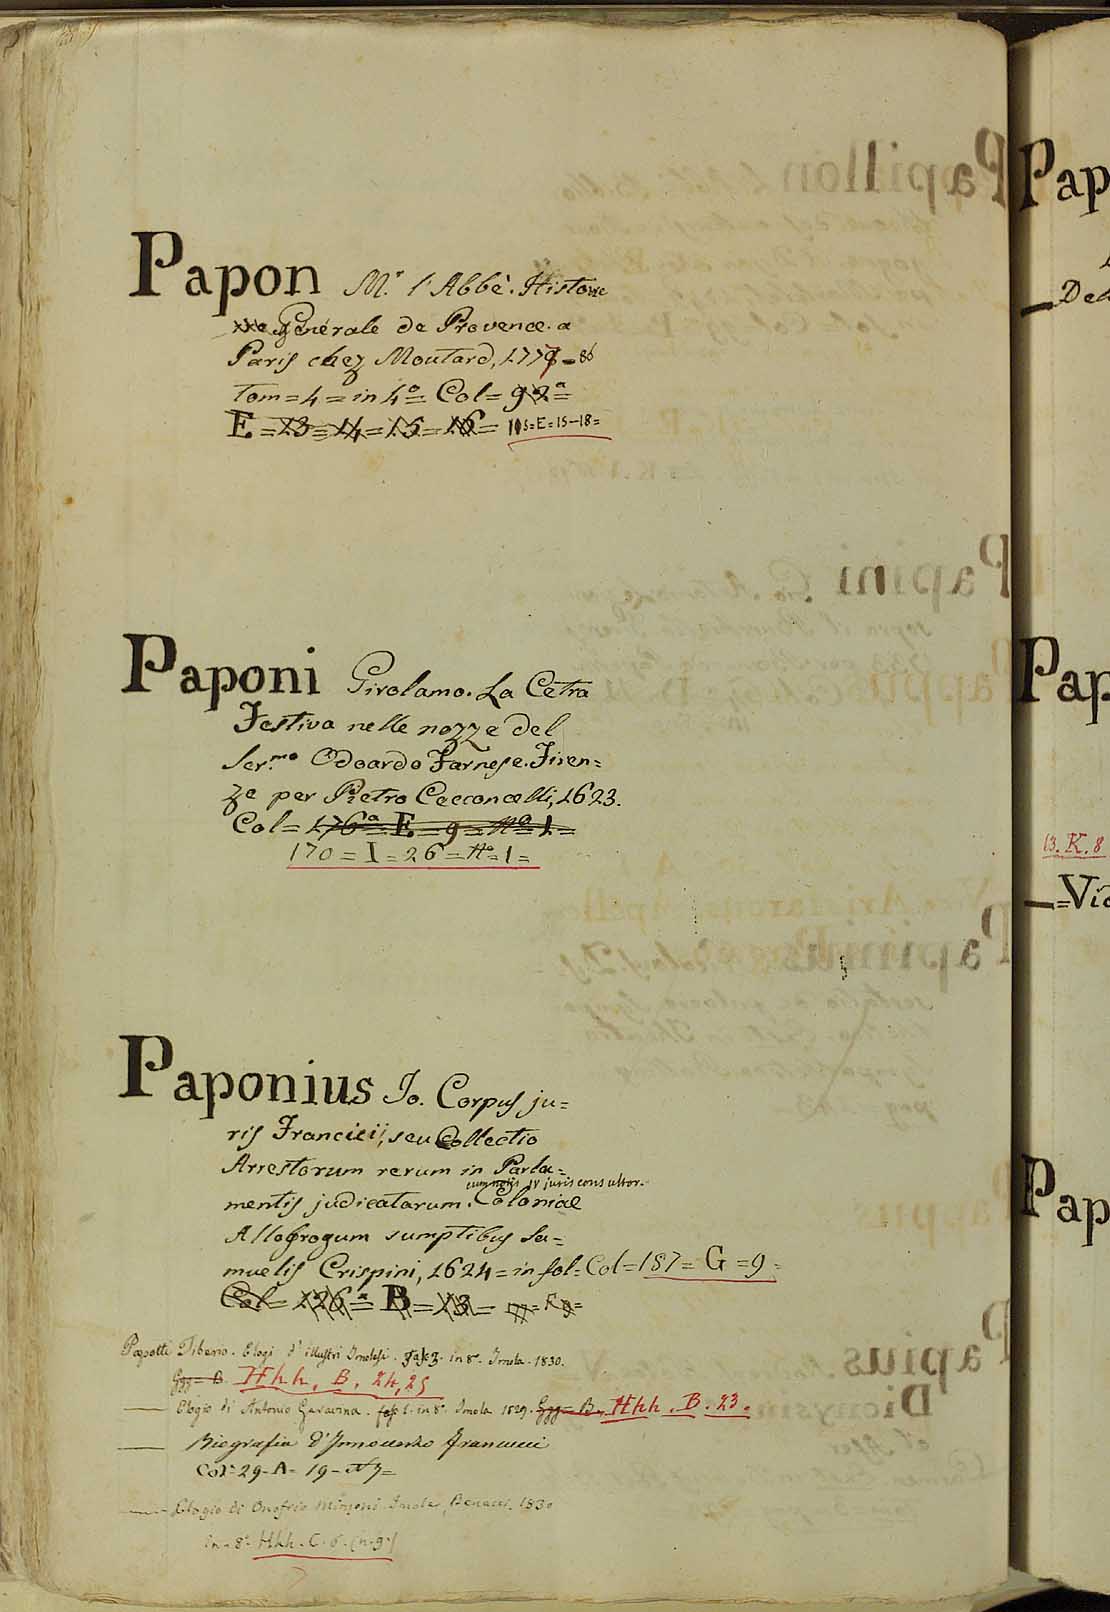 Papon M.r l'Abbè. Histoire
Génèrale de Provence. a
Paris chez Moutard, 1778=86
Tom=4=in 4º= Col= 92ª=
E=13=14=15=16= 105=E=15-18=
Paponi Girolamo. La Cetra
Festiva nelle nozze del
Ser.mo Odoardo Farnese. Firen=
ze per Pietro Cecconcelli, 1623.
Col= 176ª= E=9=nº=1=
170=I=26=nº=1=
Paponius Jo. Corpus ju=
ris Francici, seu Collectio
Arrestorum rerum in Parla=
cum notis jurisconsultor.
mentis judicatarum. Coloniae
Allobrogum sumptibus Sa=
muelis Crispini, 1624=in fol= Col=187=G=9=
Col= 126ª= B=13=
Papotti Tiberio. Elogi d'illustri Imolesi. Fas. 2. in 8º. Imola. 1830.
Ggg=B. Hhh. B. 24,25
— Elogio di Antonio Gavavina. fasc. 1. in 8º. Imola 1829. Ggg=B. Hhh. B. 23.
— Biografia d'Innocenzo Francucci
Col=29-A=19-nº7=
— Elogio di Onofrio Minzoni. Imola, Benacci, 1830
in-8º. Hhh. C. 6. (n.9)
Pap
Pap
13. K. 8
Pap